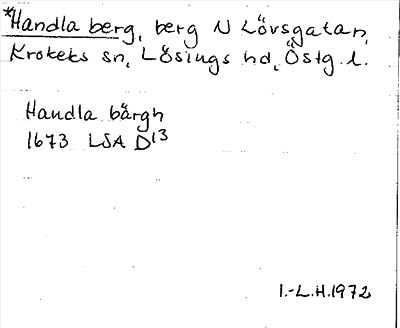 *Handla berg, berg N Lövsgatan,
Krokeks sn, Lösings hd, Östg. l.
Handla bärgh
1673 LSA D13
I.-L.H.1972